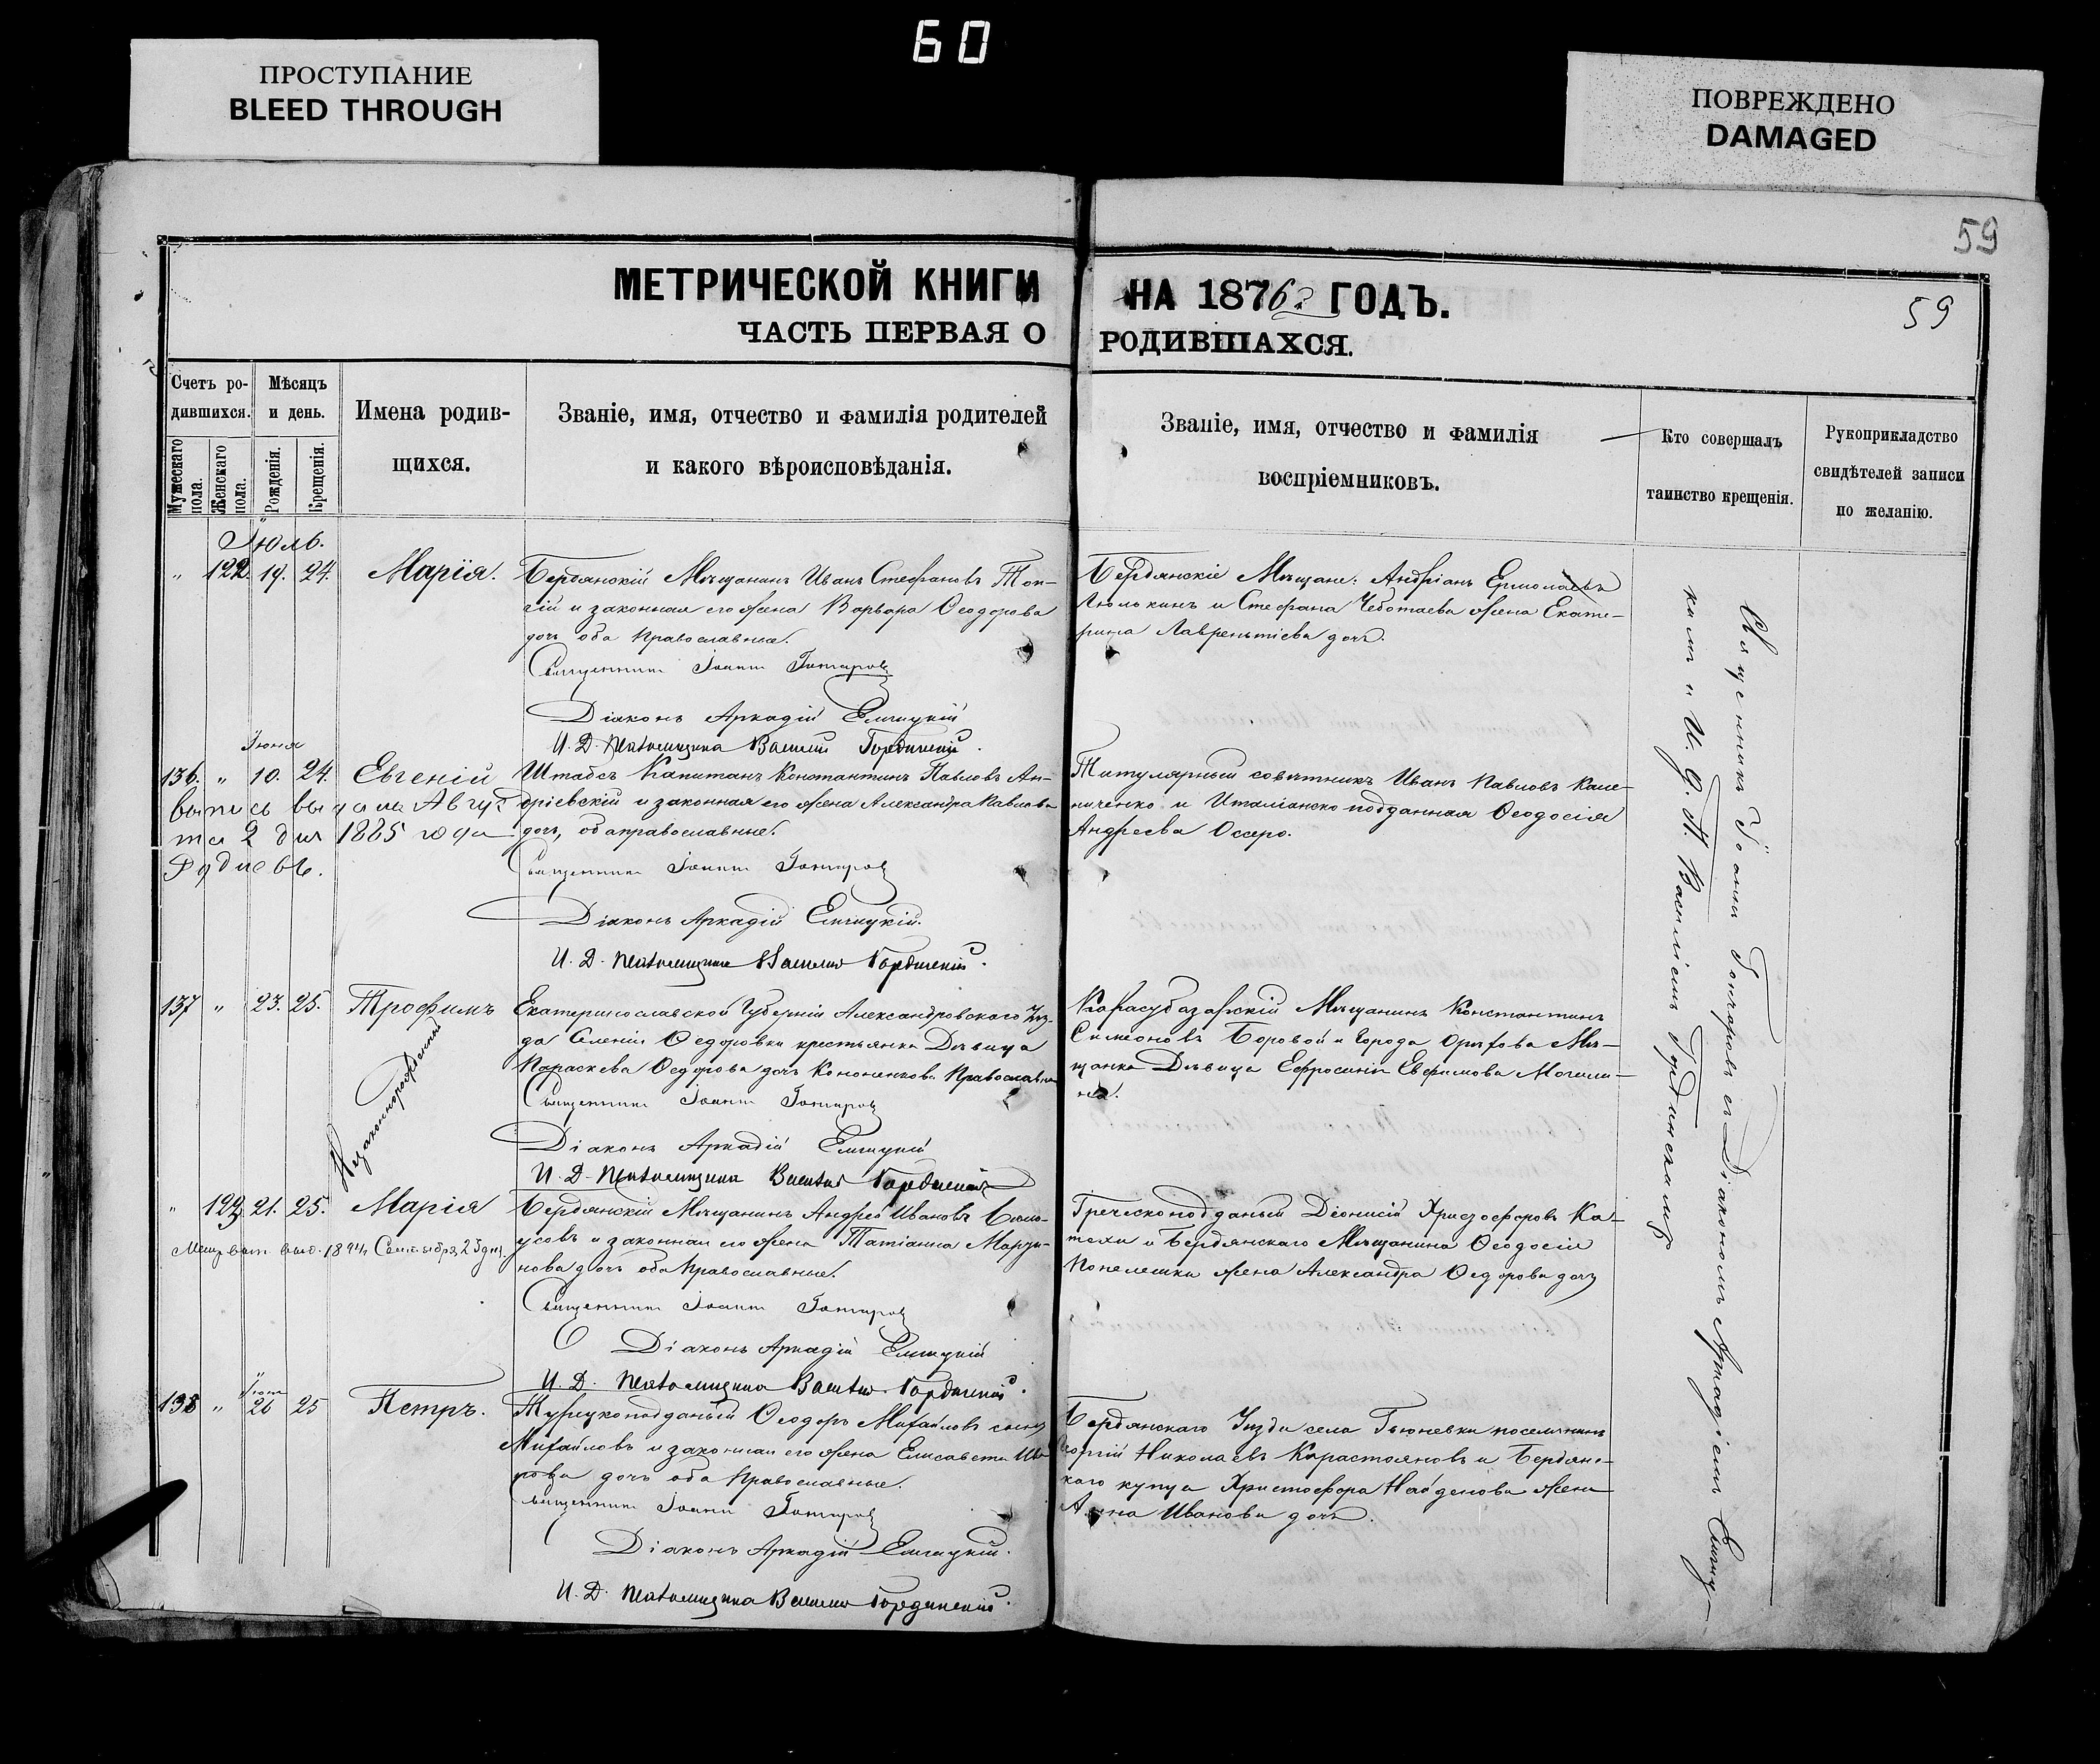 60
ПРОСТУПАНИЕ
BLEED THROUGH
ПОВРЕЖДЕНО
DAMAGED
59
МЕТРИЧЕСКОЙ КНИГИ НА 1876 ГОДЪ.
59
ЧАСТЬ ПЕРВАЯ О РОДИВШАХСЯ.
Счетъ ро-
дившихся.
Мужескаго пола.
Женскаго пола.
Мѣсяцъ
и день.
Рожденія.
Крещенія.
Имена родив-
щихся.
Званіе, имя, отчество и фамилія родителей
и какого вѣроисповѣданія.
Званіе, имя, отчество и фамилія
воспріемниковъ.
Кто совершалъ
таинство крещенія.
Рукоприкладство
свидѣтелей записи
по желанію.
Іюль.
" 122. 19. 24. Марія.
Бердянскій Мѣщанинъ Иванъ Стефановъ
и законная его жена Варвара Ѳеодорова
дочь оба православные.
Священникъ Іоаннъ Гончаровъ
Діаконъ Аркадій Емицкій
И. Д. Псаломщика Василій Гординскій.
Бердянскіе Мѣщане: Андріанъ Ермолаевъ
Люлькинъ и Стефана Чеботаева жена Екате-
рина Лаврентіева дочь.
Іюня
136. " 10. 24. Евгеній
выпись выдана Авгу-
ста 2 дня 1885 года
Штабсъ Капитанъ Константинъ Павловъ Ан-
дріевскій и законная его жена Александра Павлова
дочь, оба православные.
Священникъ Іоаннъ Гончаровъ
Діаконъ Аркадій Емицкій.
И. Д. Псаломщика Василій Гординскій.
Титулярный совѣтникъ Иванъ Павловъ Каме-
ниченко и Италіанско подданная Ѳеодосія
Андреева Оссеро.
137 " 23. 25. Трофимъ
Незаконнорожденный
Екатеринославской Губерніи Александровскаго Уѣз-
да Селенія Ѳедоровки крестьянка Дѣвица
Параскева Ѳедорова дочь Кононенкова Православная
Священникъ Іоаннъ Гончаровъ
Діаконъ Аркадій Емицкій
И. Д. Псаломщика Василій Гординскій
Карасубазарскій Мѣщанинъ Константинъ
Симеоновъ Боровой и Города Орѣхова Мѣ-
щанка Дѣвица Ефросинія Евфимова Могили-
на.
" 123. 21. 25. Марія
Бердянскій Мѣщанинъ Андрей Ивановъ
и законная его жена Татіанна Марти-
нова дочь оба Православные.
Священникъ Іоаннъ Гончаровъ
Діаконъ Аркадій Емицкій
И. Д. Псаломщика Василій Гординскій.
Греческоподданый Діонисій Христофоровъ Ка-
техи и Бердянскаго Мѣщанина Ѳеодосія
Попелешки жена Александра Ѳедорова дочь
138 " 26 25 Петръ.
Турецкоподданый Ѳеодоръ Михайловъ сынъ
Михайловъ и законная его жена Елисавета
дочь оба Православные.
Священникъ Іоаннъ Гончаровъ
Діаконъ Аркадій Емицкій.
И. Д. Псаломщика Василій Гординскій.
Бердянскаго Уѣзда села Гюневки поселянинъ
Георгій Николаевъ Карастояновъ и Бердянс-
каго купца Христофора Найденова жена
Анна Иванова дочь.
Священникъ Іоаннъ Гончаровъ съ Діакономъ Аркадіемъ Емиц-
кимъ и И. Д. П. Василіемъ Гординскимъ